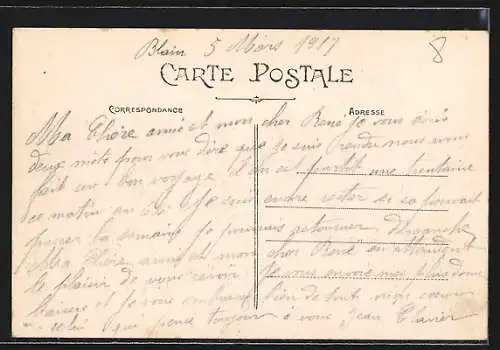 Blain 5 Mars 1917
8
CARTE POSTALE
CORRESPONDANCE
ADRESSE
Ma Chère amie et mon cher René je vous écris
deux mots pour vous dire que je suis rendu nous avons
fait un bon voyage il en est partit une trentaine
ce matin je suis encore rester si je pouvait
passer la semaine je pourrais retourner dimanche
Ma Chère amie et mon cher René en attendant
le plaisir de vous revoir je vous envoie mes plus doux
baisers et je vous embrasse bien de tout mon coeur
celui qui pense toujours a vous Jean Clavier